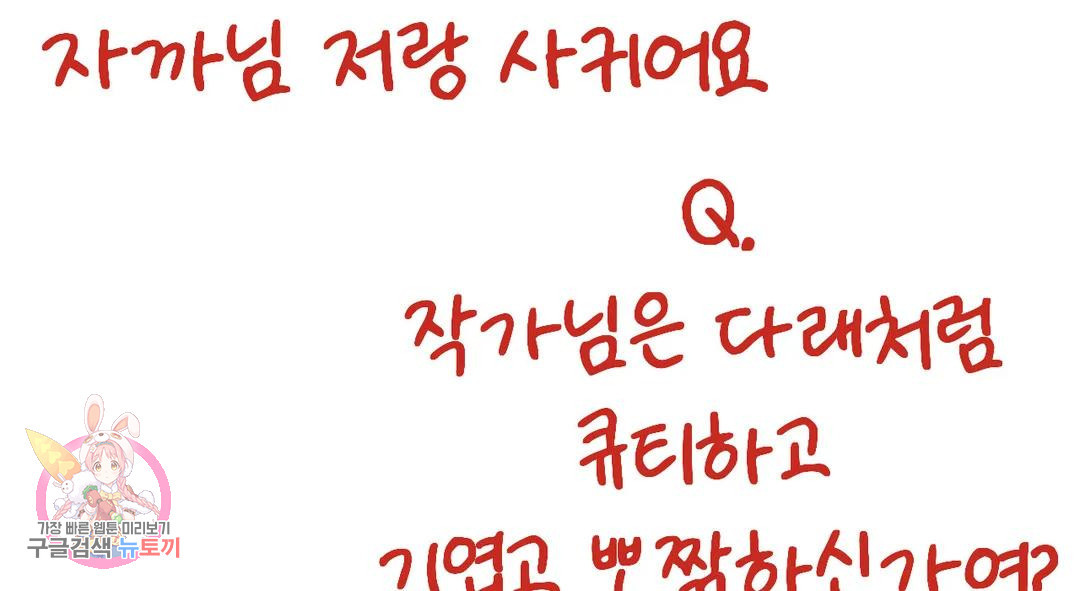 자까님 저랑 사귀어요
Q.
작가님은 다래처럼
큐티하고
기엽고 뽀짝하신가여?
가장 빠른 웹툰 미리보기
구글검색 뉴토끼